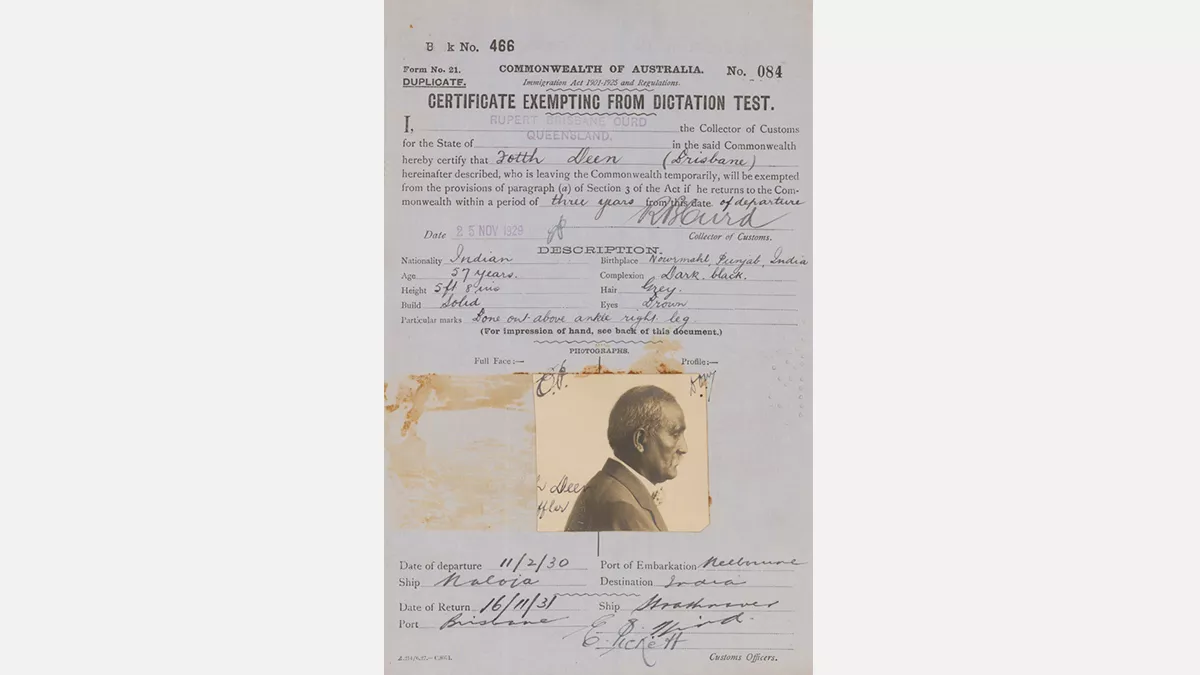 B k No. 466
Form No. 21. COMMONWEALTH OF AUSTRALIA. No. 084
DUPLICATE. Immigration Act 1901-1925 and Regulations.
CERTIFICATE EXEMPTING FROM DICTATION TEST.
I, RUPERT BRISBANE CURD the Collector of Customs
for the State of QUEENSLAND. in the said Commonwealth
hereby certify that Deen (Brisbane)
hereinafter described, who is leaving the Commonwealth temporarily, will be exempted
from the provisions of paragraph (a) of Section 3 of the Act if he returns to the Com-
monwealth within a period of three years from this date of departure
Date 25 NOV 1929 Collector of Customs.
DESCRIPTION.
Nationality Indian Birthplace Punjab, India
Age 57 years. Complexion Dark black.
Height 5ft 8 ins Hair Grey.
Build Solid Eyes Brown
Particular marks Bone out above ankle right leg
(For impression of hand, see back of this document.)
PHOTOGRAPHS.
Full Face:— Profile:—
Deen
Date of departure 11/2/30 Port of Embarkation Melbourne
Ship Maloja Destination India
Date of Return 16/11/31 Ship Strathnaver
Port Brisbane
Customs Officers.